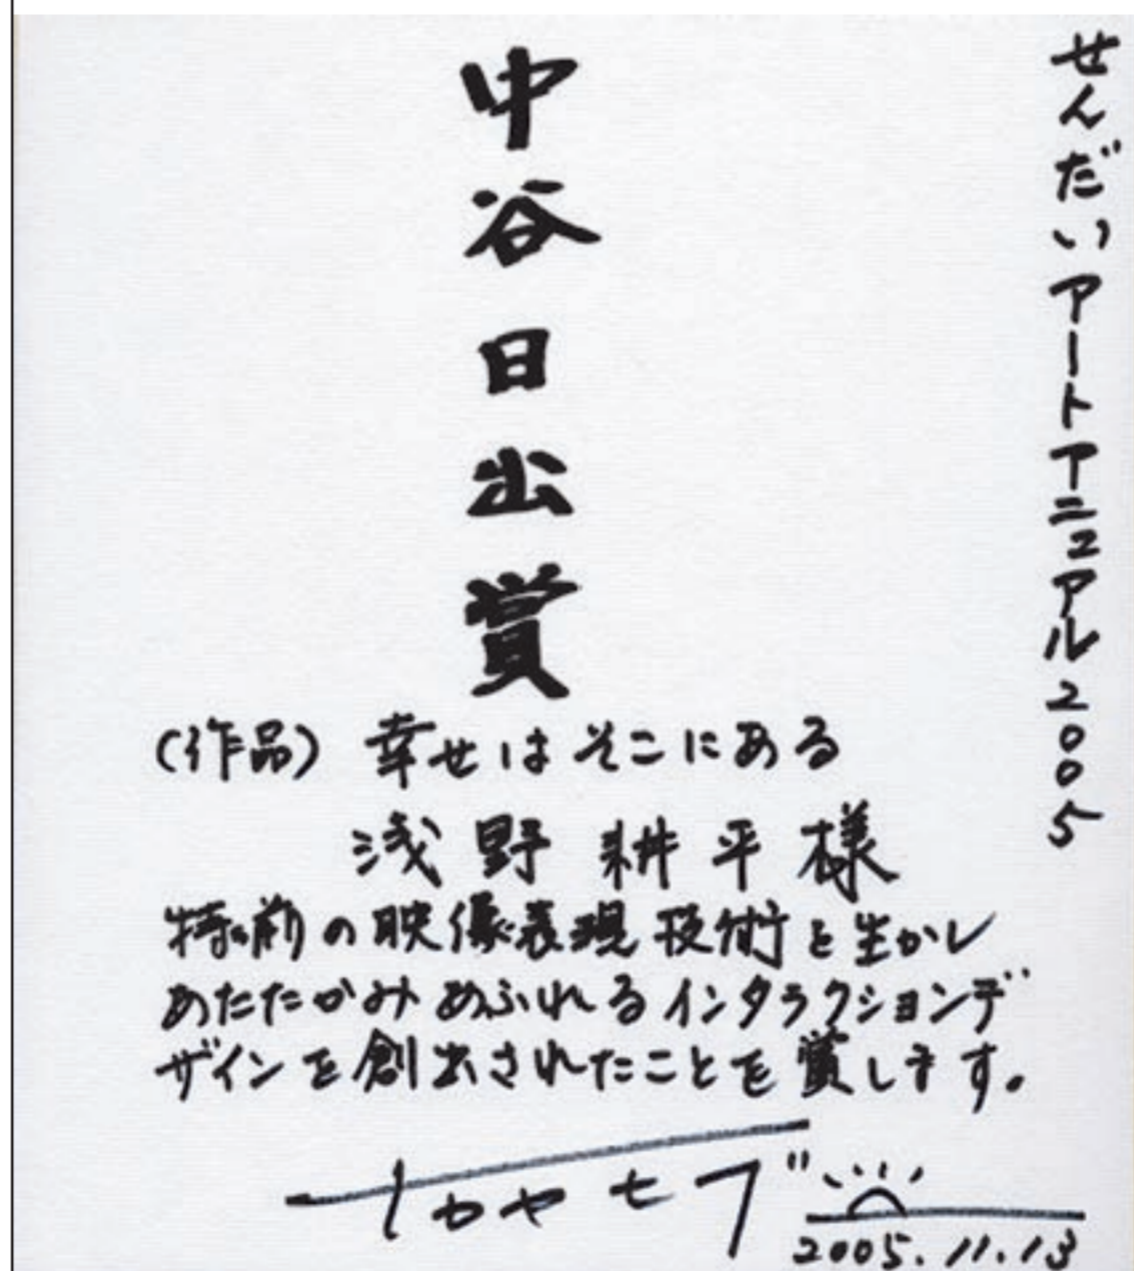 せんだいアートアニュアル2005
中谷日出賞
(作品) 幸せはそこにある
浅野耕平様
特に前の映像表現技術を生かし
あたたかみあふれるインタラクションデ
ザインを創出されたことを賞します。
2005.11.13